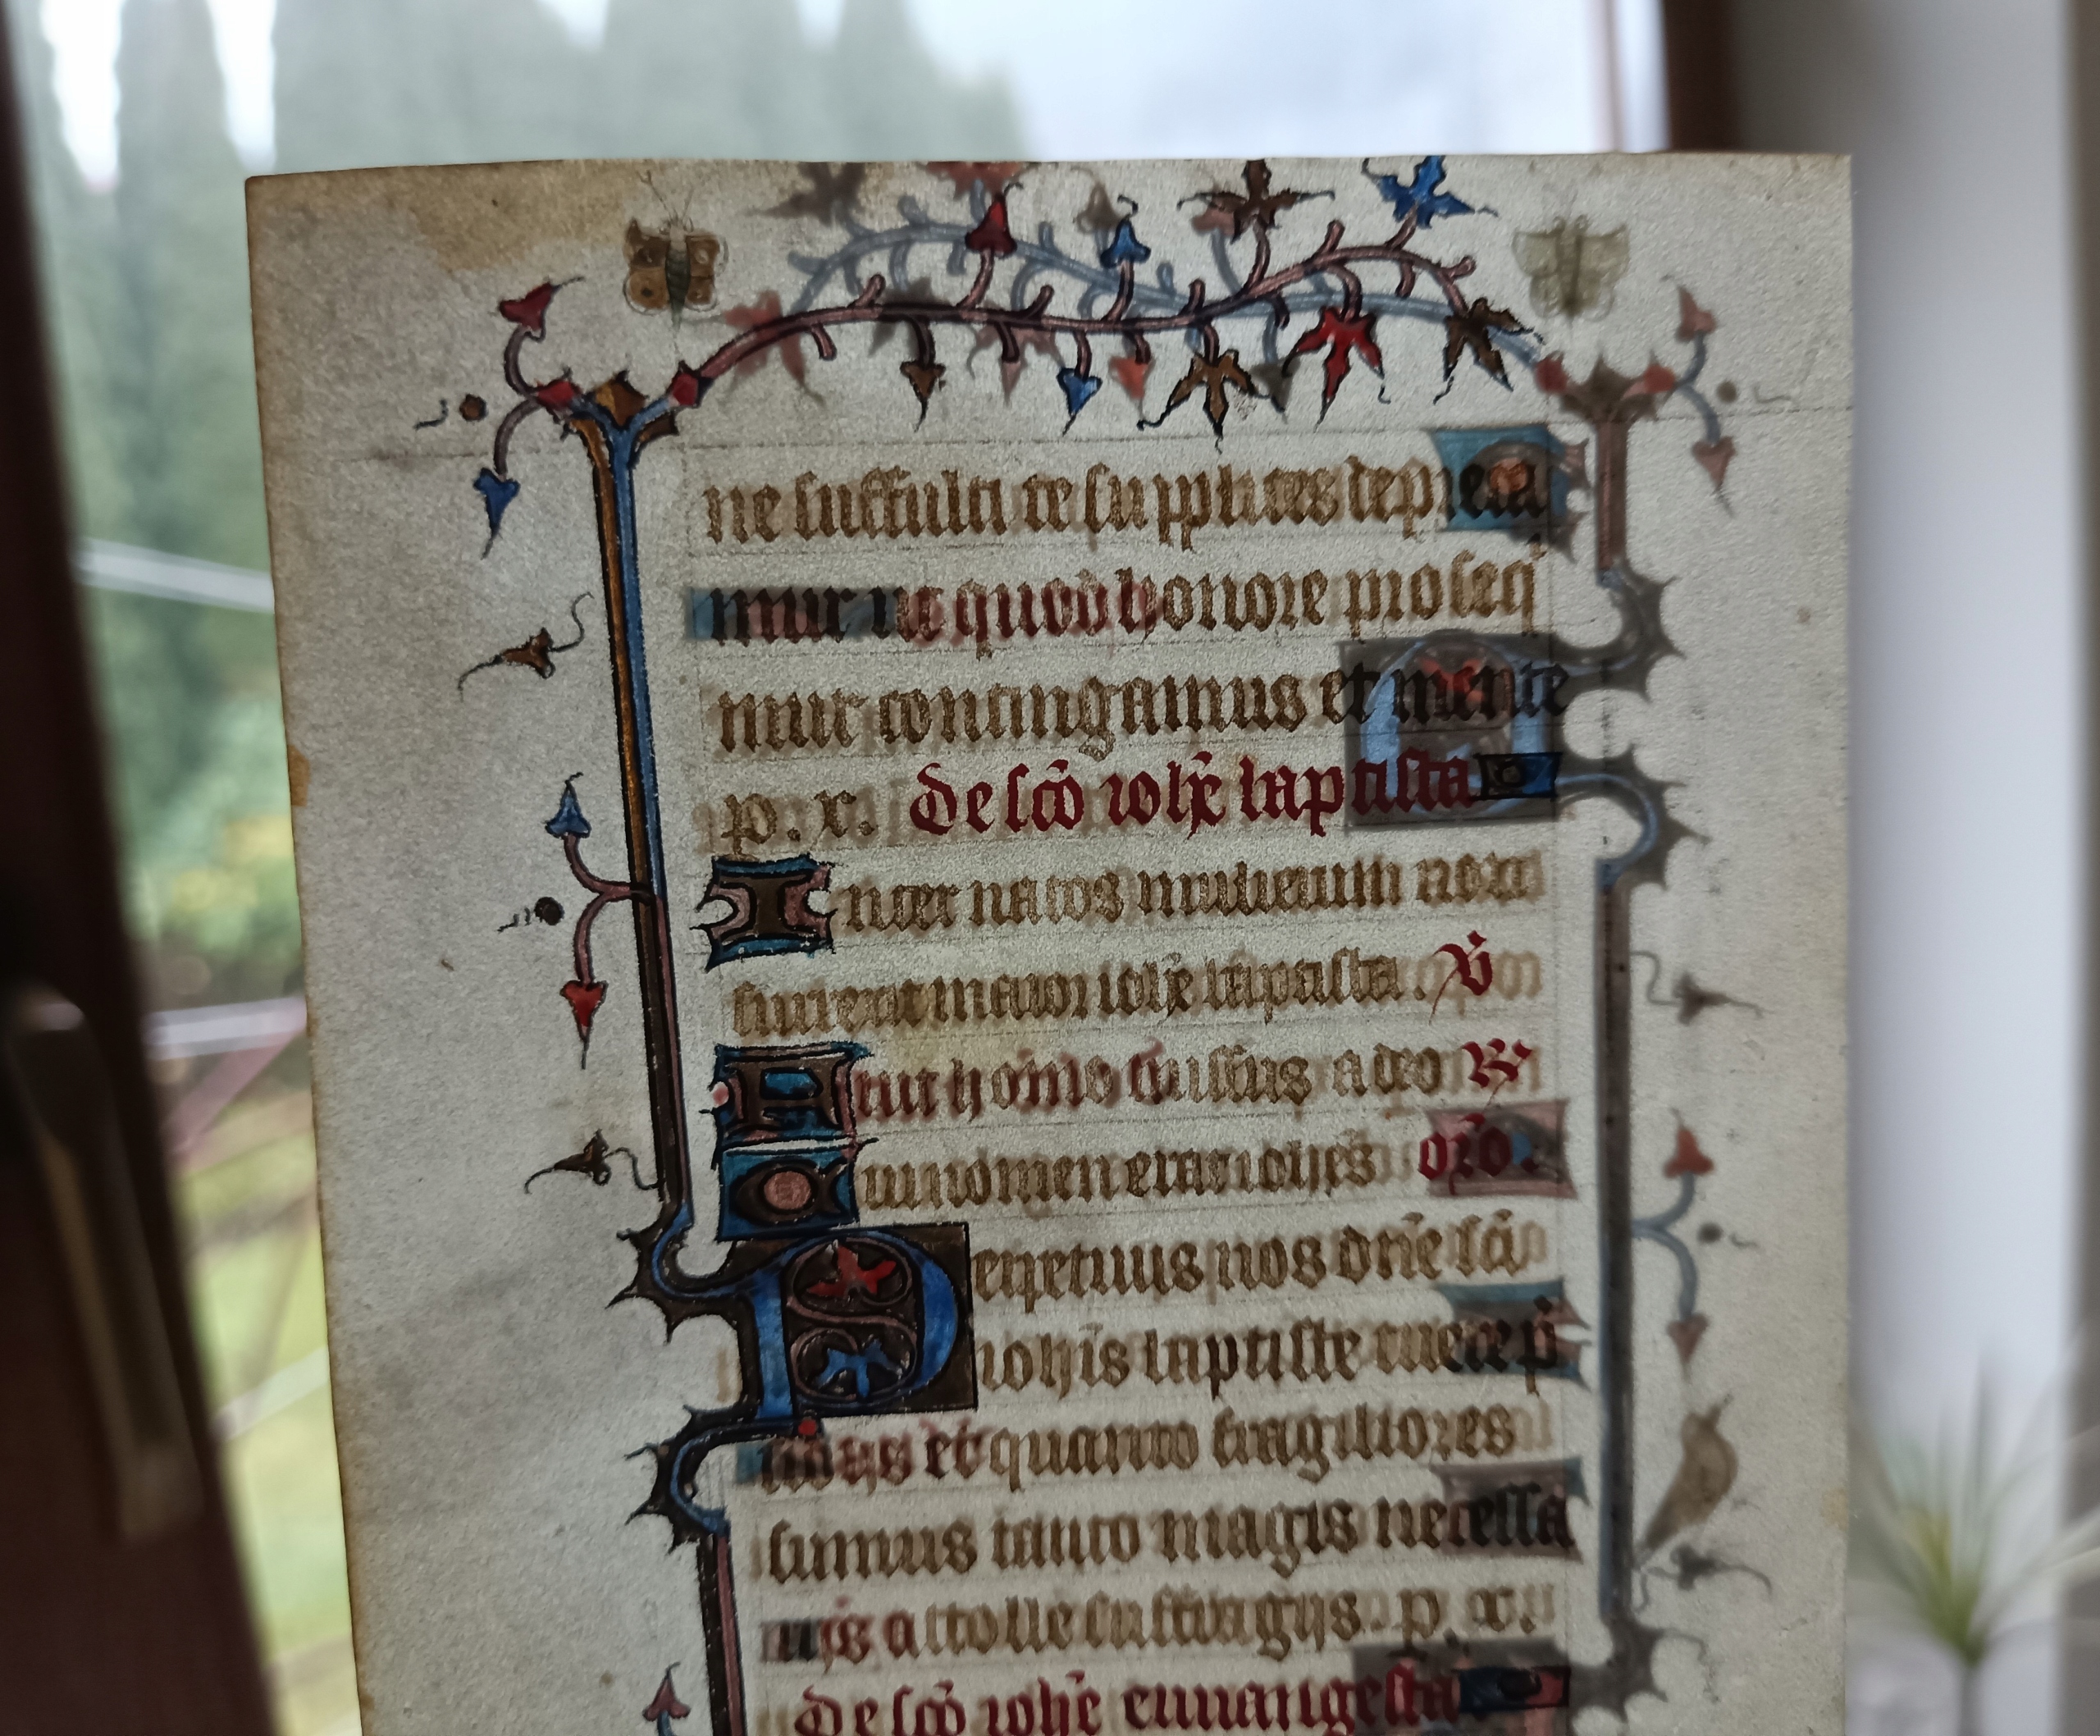 ne suffulti te supplices depreca
mur ut quod honore prosequi
mur contingamus et mente
p. x. De sco iohe baptista
Inter natos mulierum non
surrexit maior iohe baptista. V
fuit homo missus a deo R
cui nomen erat iohes oro.
Perpetuis nos dne sci
iohis baptiste tuere p
cibus et quanto fragiliores
sumus tanto magis necessa
rijs attolle suffragijs. p. x.
De sco iohe euuangesta